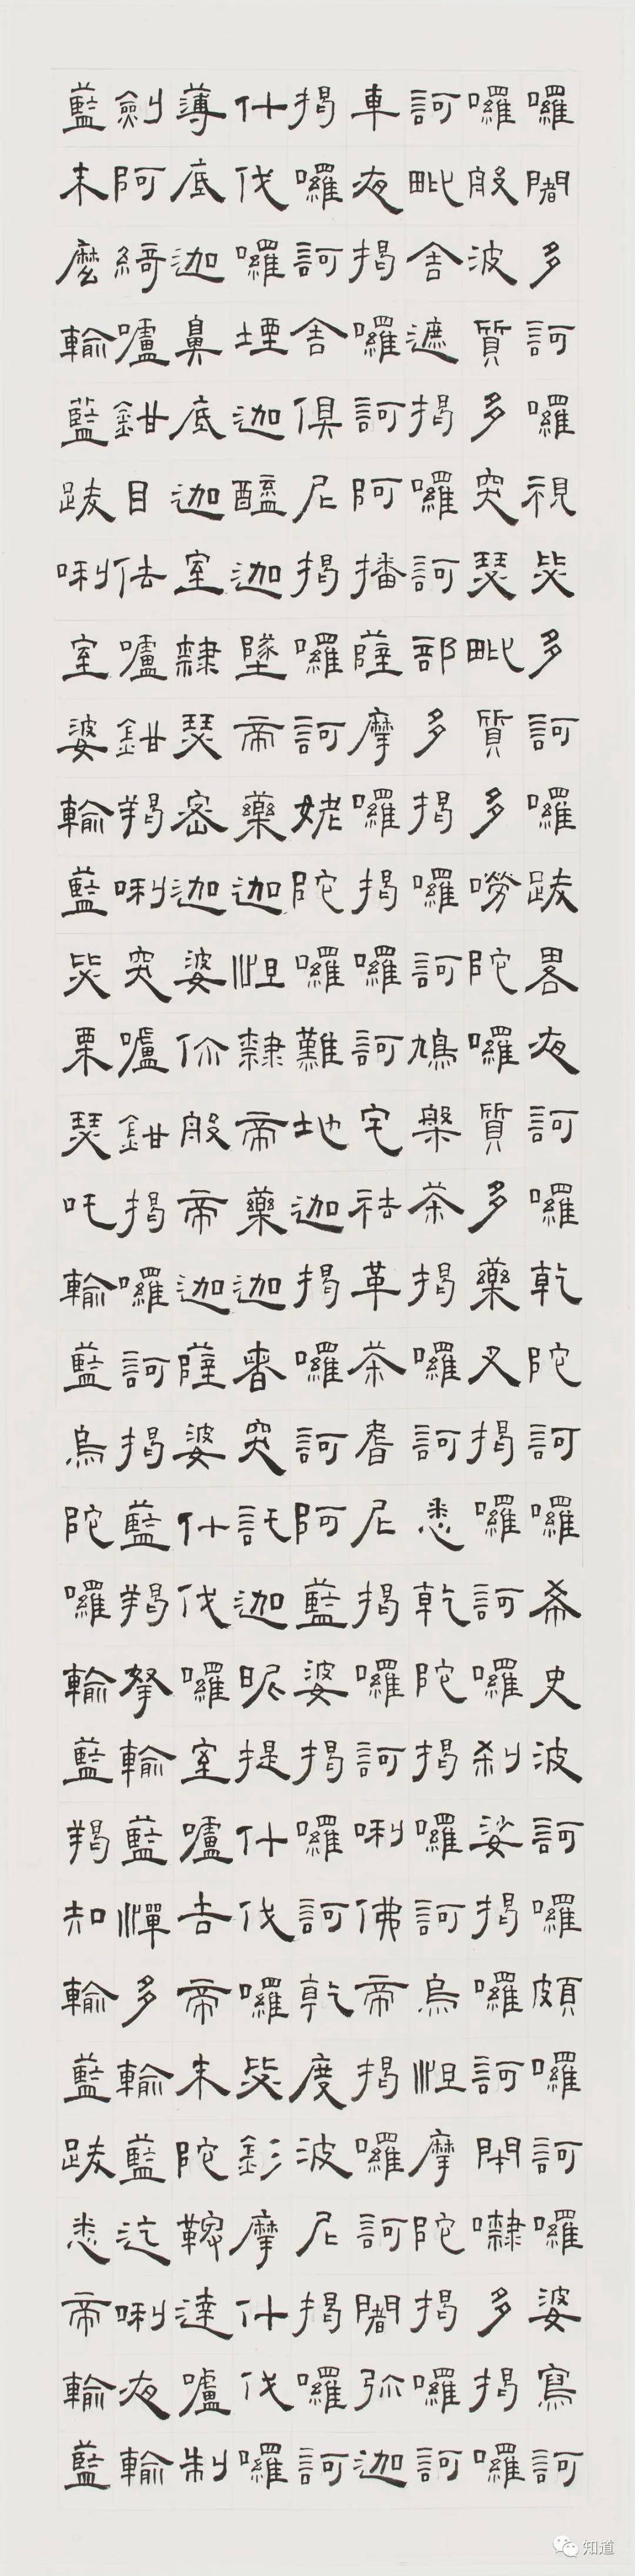 囉闍多訶囉視毖多訶囉跋畧夜訶囉乾陀訶囉布史波訶囉頗囉訶囉婆寫訶
囉般波質多突瑟毗質多嘮陀囉質多藥叉揭囉訶囉剎娑揭囉訶閉㘑多揭囉
訶毗舍遮揭囉訶部多揭囉訶鳩槃茶揭囉訶悉乾陀揭囉訶烏怛摩陀揭囉訶
車夜揭囉訶阿播薩摩囉揭囉訶宅袪革茶耆尼揭囉訶唎佛帝揭囉訶闍弥迦
揭囉訶舍俱尼揭囉訶姥陀囉難地迦揭囉訶阿藍婆揭囉訶乾度波尼揭囉訶
什伐囉堙迦醯迦墜帝藥迦怛隸帝藥迦者突託迦昵提什伐囉毖釤摩什伐囉
薄底迦鼻底迦室隸瑟密迦婆你般帝迦薩婆什伐囉室嚧吉帝末陀鞞達嚧制
劍阿綺嚧鉗目佉嚧鉗羯唎突嚧鉗揭囉訶揭藍羯拏輸藍憚多輸藍迄唎夜輸
藍末麽輸藍跋唎室婆輸藍毖栗瑟吒輸藍烏陀囉輸藍羯知輸藍跋悉帝輸藍
知道